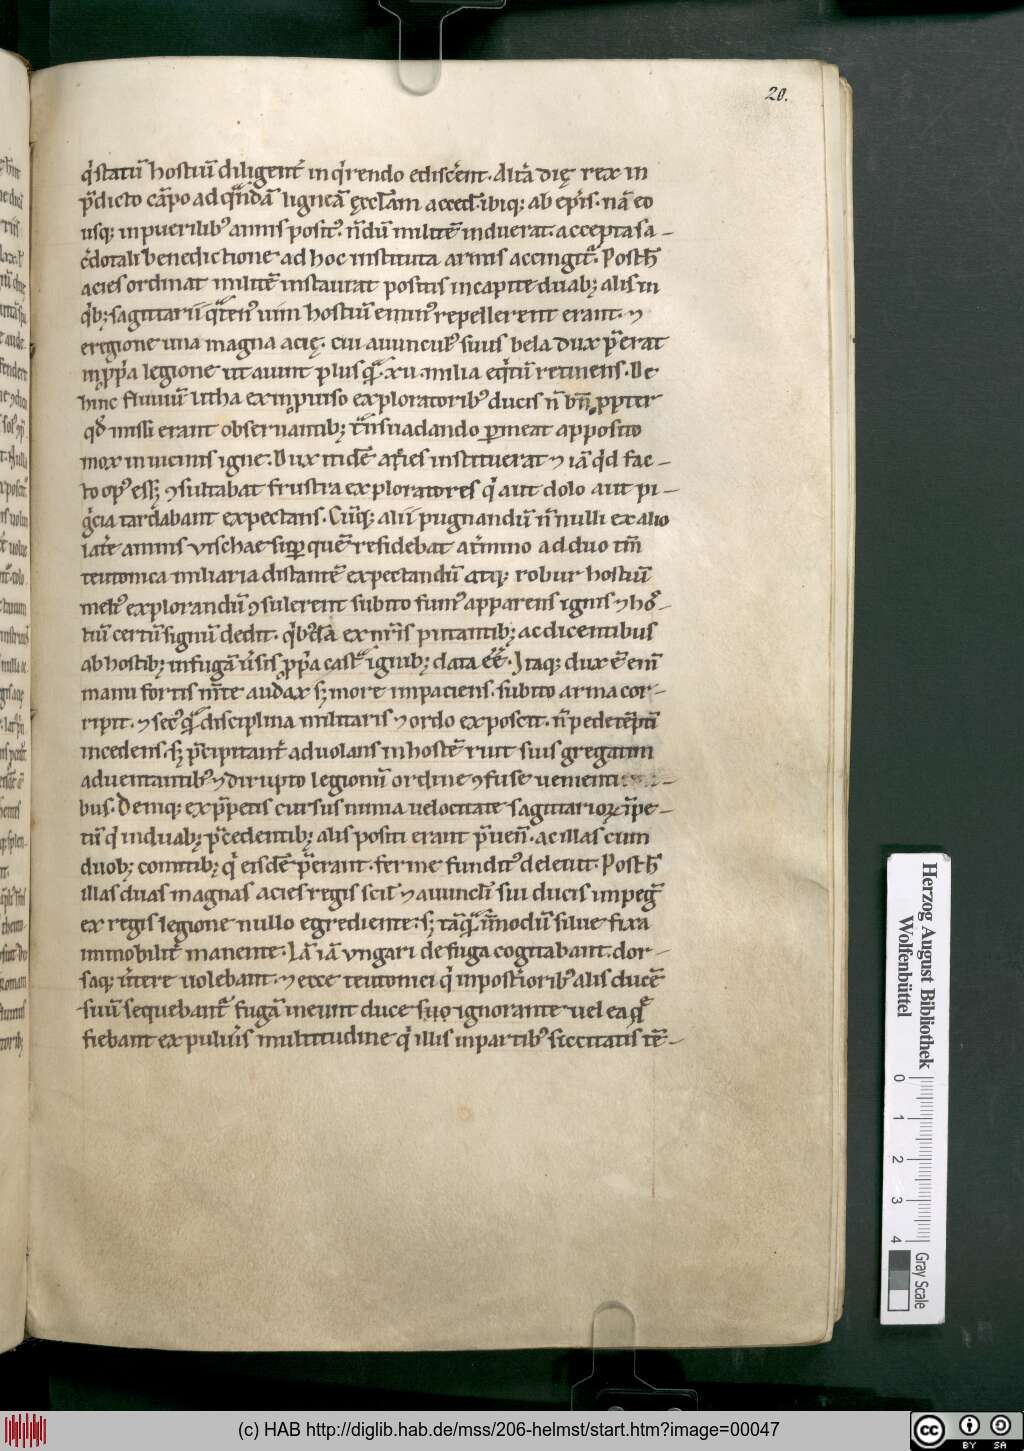 20.
q̍ statū hostiū diligent̄ in q̍rendo ediscẽnt. Altã die rex in
p̄dicto cāpo ad q̄ndā ligneā ęcclam acced̄. ibiq; ab ep̄is. nā eo
usq; in puerilib᷒ annis posit᷒. n̄dū militē induerat. accepta sa-
c̃dotali benedictione ad hoc instituta armis accingit᷑. Posth̄
acies ordinat militē instaurat positis in capite duab; alis in
q̍b; sagittarii q̄ten᷒ uim hostiū emin᷒ repellerent erant. ⁊
eregione una magna acię. cui auuncul᷒ suus bela dux p̄erat
in ꝓp̍a legione ut aiunt plus q̄ .xv. milia eq̍tū retinens. De
hinc fluuiū litha ex inꝓuiso exploratorib᷒ ducis n̄ bn̄ ꝓpter
qd̄ missi erant obseruantib; t̃nsuadando ꝑmeat apposito
mox in uicinis igne. Dux itidē acies instituerat ⁊ iā q̍d fac-
to op᷒ ess; ꝯsultabat frustra exploratores q̍ aut dolo aut pi-
g̍cia tardabant expectans. Cūq; alii pugnandū n̄nulli ex alio
latẽ amnis vischae sup quē residebat at̃mino ad duo tm̄
teutonica miliaria distantē expectandū atq; robur hostiū
meli᷒ explorandū ꝯsulerent subito fum᷒ apparens ignis ⁊ ho-
tiū certū signū dedit. q̍b᷒dā ex nr̄is putantib; ac dicentibus
ab hostib; in fugā ṽsis ꝓp̍a cast̃ ignib; data ēē. Itaq; dux ē enī
manu fortis m̄te audax s; more impaciens. subito arma cor-
ripit. ⁊ sec᷒ q̄ disciplina militaris ⁊ ordo exposcit. n̄ pedetēptī
incedens. s; p̄cipitant̄ aduolans in hostē ruit suis gregatim
aduentantib᷒ ⁊ dirupto legionū ordine ꝯfuse uenienti
bus. Deniq; ex p̄petis cursus nimia uelocitate sagittarioꝝ īpe-
tū q̍ in duab; p̄cedentib; alis positi erant p̄uen̄. ac illas cum
duob; comitib; q̍ eisdē p̄erant. ferme fundit᷒ deleuit. Posth̄
illas duas magnas acies regis scil̄ ⁊ auunculi sui ducis impeḡ
ex regis legione nullo egrediente. s; tāq̄ īmodū silue fixa
immobilit̄ manente. Iā iā vngari de fuga cogitabant. dor-
saq; ṽtere uolebant. ⁊ ecce teutonici q̍ in postĩorib᷒ alis ducē
suū sequebant᷑ fugā ineunt duce suo ignorante uel ea q̄
fiebant ex puluĩs multitudine q̍ illis in partib᷒ siccitatis tē-
Herzog August Bibliothek
Wolfenbüttel
0 1 2 3 4
Gray Scale
(c) HAB http://diglib.hab.de/mss/206-helmst/start.htm?image=00047
cc BY SA